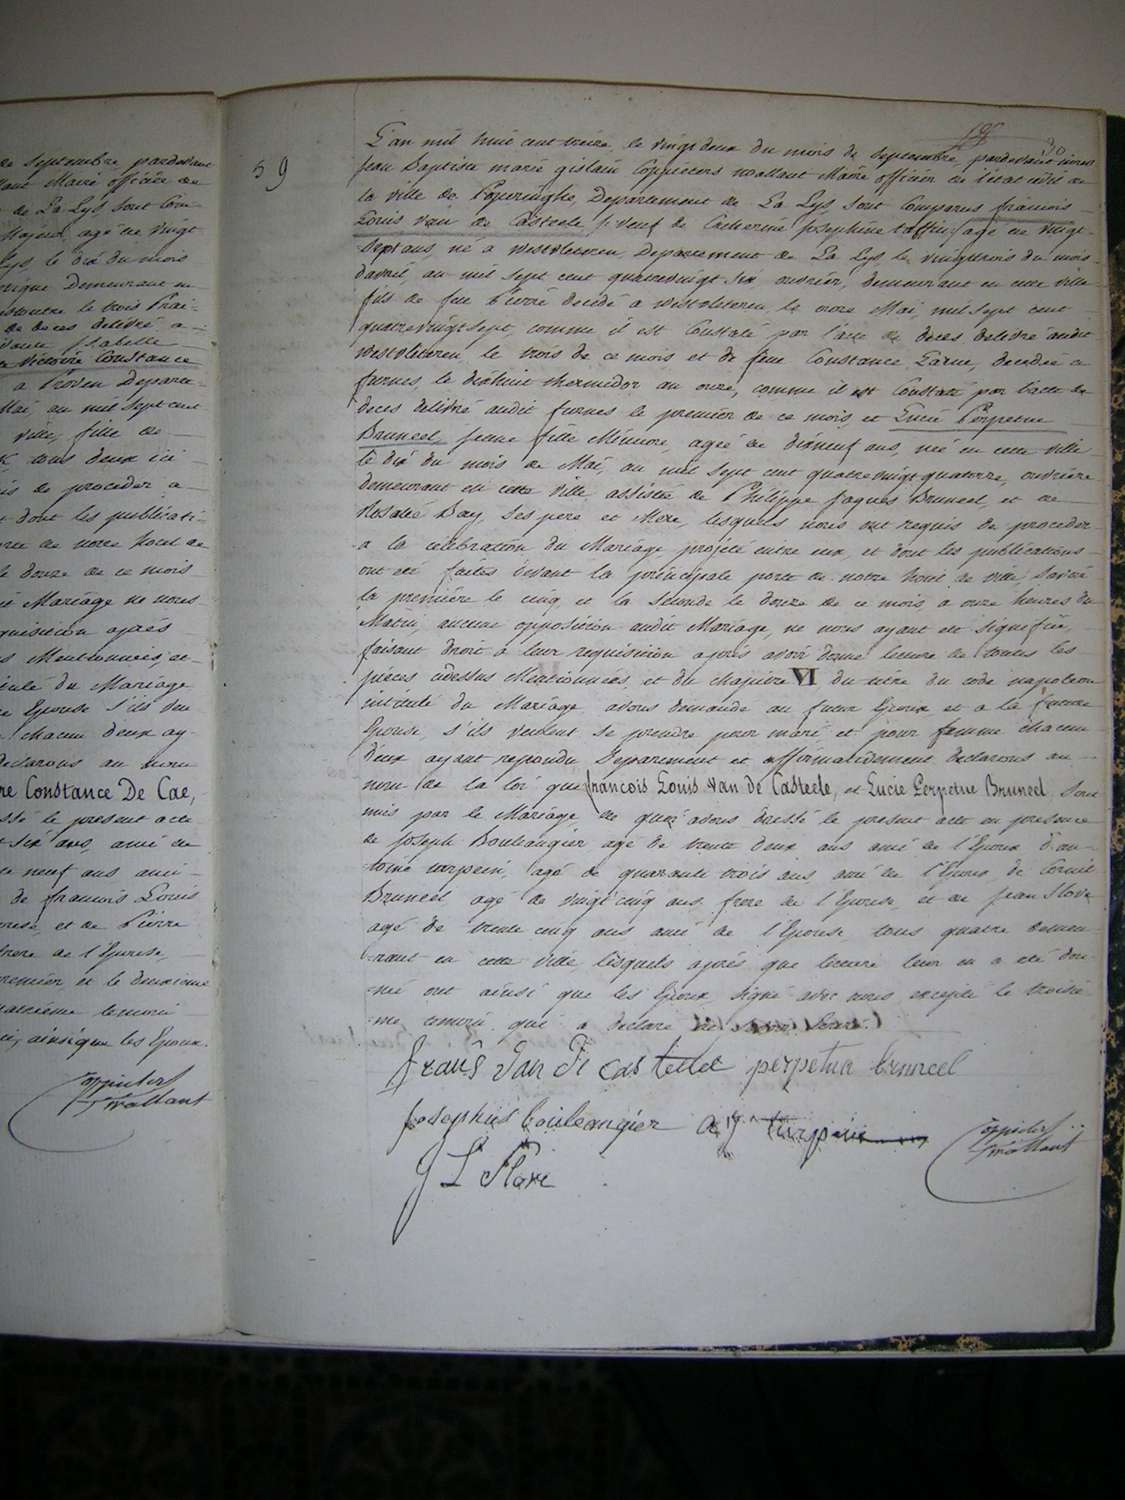 re Septembre pardevant
lant Maire officier de
de La Lys sont Com
Majeur, agé de vingt
Lys le dix du mois
Demeurant en
le trois Prai-
de deces delivré a
Isabelle
Victoire Constance
a Proven Departe-
Mai, au mil sept cent
ville, fille de
tous deux ici
is de proceder a
t dont les publicati-
porte de notre hotel de
le douze de ce mois
it Mariage ne nous
quisition après
s Mentionnées, et
titulé du Mariage
re Epouse s'ils veu
chacun deux ay-
declarons au nom
re Constance De Cae,
ssé le present acte
t six ans, ami de
te neuf ans ami
de francois Louis
Epouse, et de Pierre
frere de l'Epouse,
premier et le deuxieme
quatrieme temoin
ci, ainsi que les Epoux.
Coppieters
Wallant
59
30
L'an mil huit cent treize, le vingt deux du mois de Septembre pardevant nous
Jean Baptiste marie gislain Coppieters Wallant Maire officier de l'état civil de
la ville de Poperinghe, Departement de La Lys sont Comparus francois
Louis van de Casteele, veuf de Catherine Josephine taffin, agé de vingt-
sept ans, né a Westvleteren Departement de La Lys le vingt trois du mois
davril, au mil sept cent quatrevingt six ouvrier, demeurant en cette ville
fils de feu Pierre decédé a Westvleteren le onze Mai, mil sept cent
quatrevingt sept, comme il est Constaté par l'acte de deces delivré audit
Westvleteren, le trois de ce mois et de feue Constance Larue, decedée a
furnes, le dixhuit thermidor an onze, comme il est Constaté par l'acte de
deces delivré audit furnes le premier de ce mois et Lucie Perpetue
Bruneel, jeune fille Mineure, agée de dixneuf ans, née en cette ville
le dix du mois de Mai, au mil sept cent quatrevingt quatorze, ouvrière
demeurant en cette ville assistée de Philippe Jaques Bruneel, et de
Rosalie Bay, ses pere et Mere, lesquels nous ont requis de proceder
a la célébration du Mariage projeté entre eux, et dont les publications
ont été faites devant la principale porte de notre hotel de ville, savoir
la première le cinq et la seconde le douze de ce mois, a onze heures du
Matin, aucune opposition audit Mariage, ne nous ayant été signifiée,
faisant droit a leur requisition après avoir donné lecture de toutes les
pièces cidessus Mentionnées, et du chapitre VI du titre du code napoleon
intitulé du Mariage, avons demandé au futur Epoux et a la future
Epouse, s'ils veulent se prendre pour mari et pour femme chacun
deux ayant repondu Separement et affirmativement declarons au
nom de la loi que francois Louis van de Casteele, et Lucie Perpetue Bruneel, sont
unis par le Mariage, de quoi avons dressé le present acte en presence
de Joseph Boulangier agé de trente deux ans ami de l'Epoux d'an-
toine turpein, agé de quarante trois ans, ami de l'Epoux, de Corneil
Bruneel agé de vingt cinq ans frere de l'Epouse, et de Jean flore
agé de trente cinq ans ami de l'Epouse, tous quatre demeu-
rant en cette ville, lesquels après que lecture leur en a été don-
né ont ainsi que les Epoux signé avec nous excepté le troisiè
me temoin qui a declaré
frans Van De Casteele perpetua bruneel
Josephus boulangier a J turpein
Coppieters
Wallant
J L flore